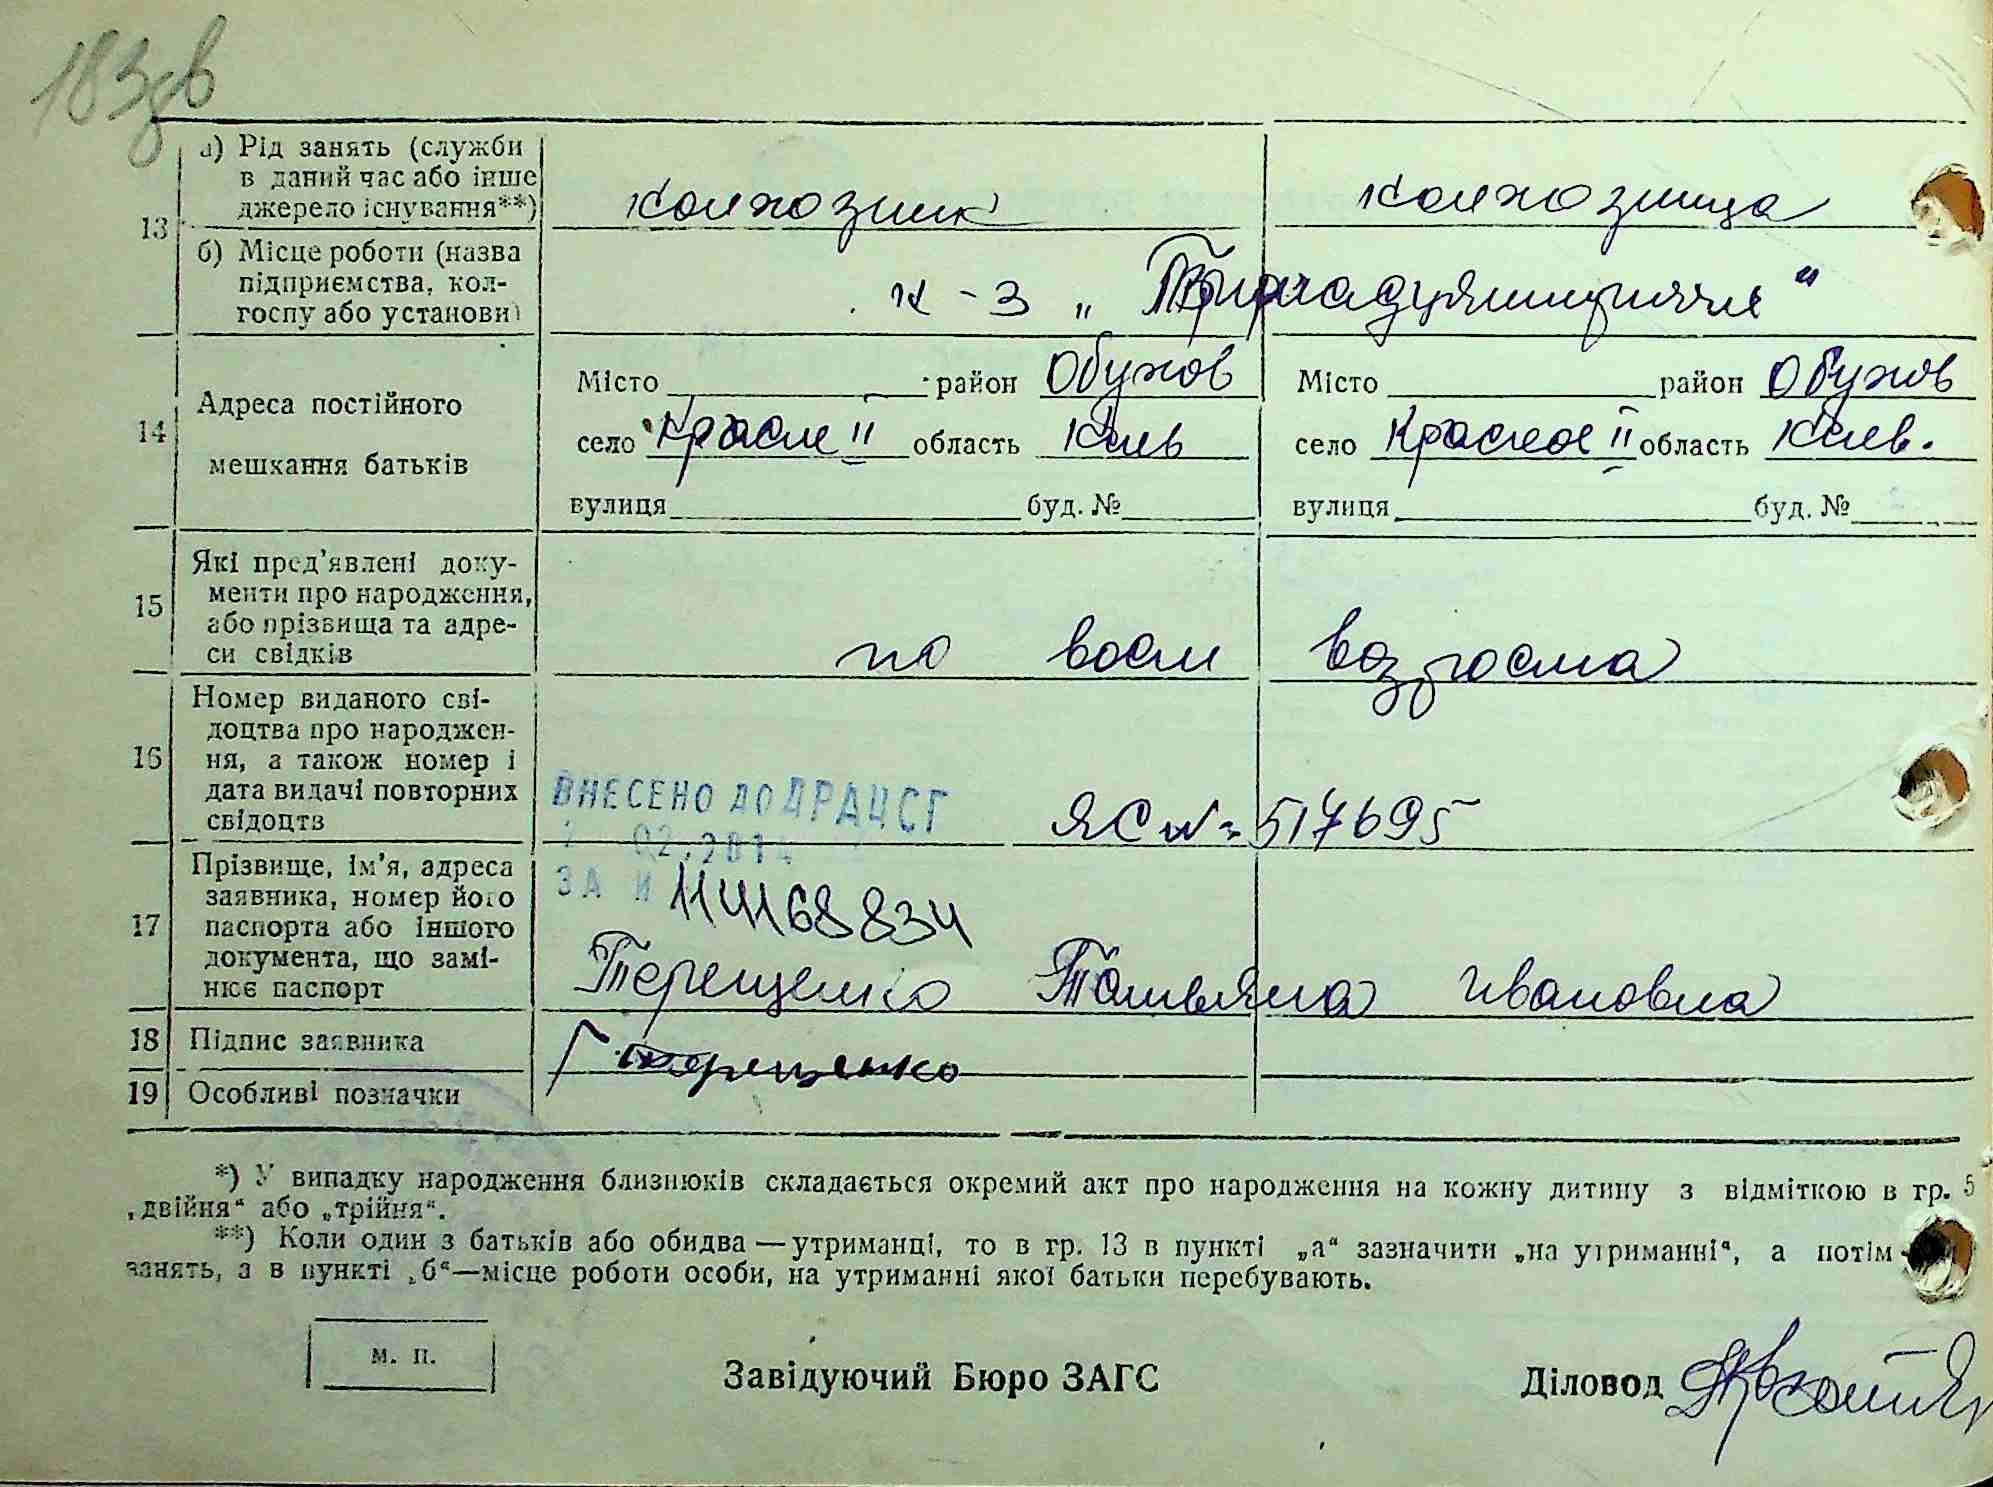 183зв
13
а) Рід занять (служби
в даний час або інше
джерело існування**)
колхозник
колхозница
б) Місце роботи (назва
підприємства, кол-
госпу або установи)
к-з „
"
14
Адреса постійного
мешкання батьків
Місто район Обухов
село Красне II область Киев
вулиця буд. №
Місто район Обухов
село Красное II область Киев.
вулиця буд. №
15
Які пред'явлені доку-
менти про народження,
або прізвища та адре-
си свідків
по возроста
16
Номер виданого сві-
доцтва про народжен-
ня, а також номер і
дата видачі повторних
свідоцтв
ВНЕСЕНО ДО ДРАЦСГ
ЯС № 517695
02.201
ЗА №
114168834
17
Прізвище, ім'я, адреса
заявника, номер його
паспорта або іншого
документа, що замі-
нює паспорт
Терещенко Татьяна Ивановна
18
Підпис заявника
Терещенко
19
Особливі позначки
*) У випадку народження близнюків складається окремий акт про народження на кожну дитину з відміткою в гр. 5
„двійня“ або „трійня“.
**) Коли один з батьків або обидва — утриманці, то в гр. 13 в пункті „а“ зазначити „на утриманні“, а потім
занять, а в пункті „б“—місце роботи особи, на утриманні якої батьки перебувають.
м. п.
Завідуючий Бюро ЗАГС
Діловод